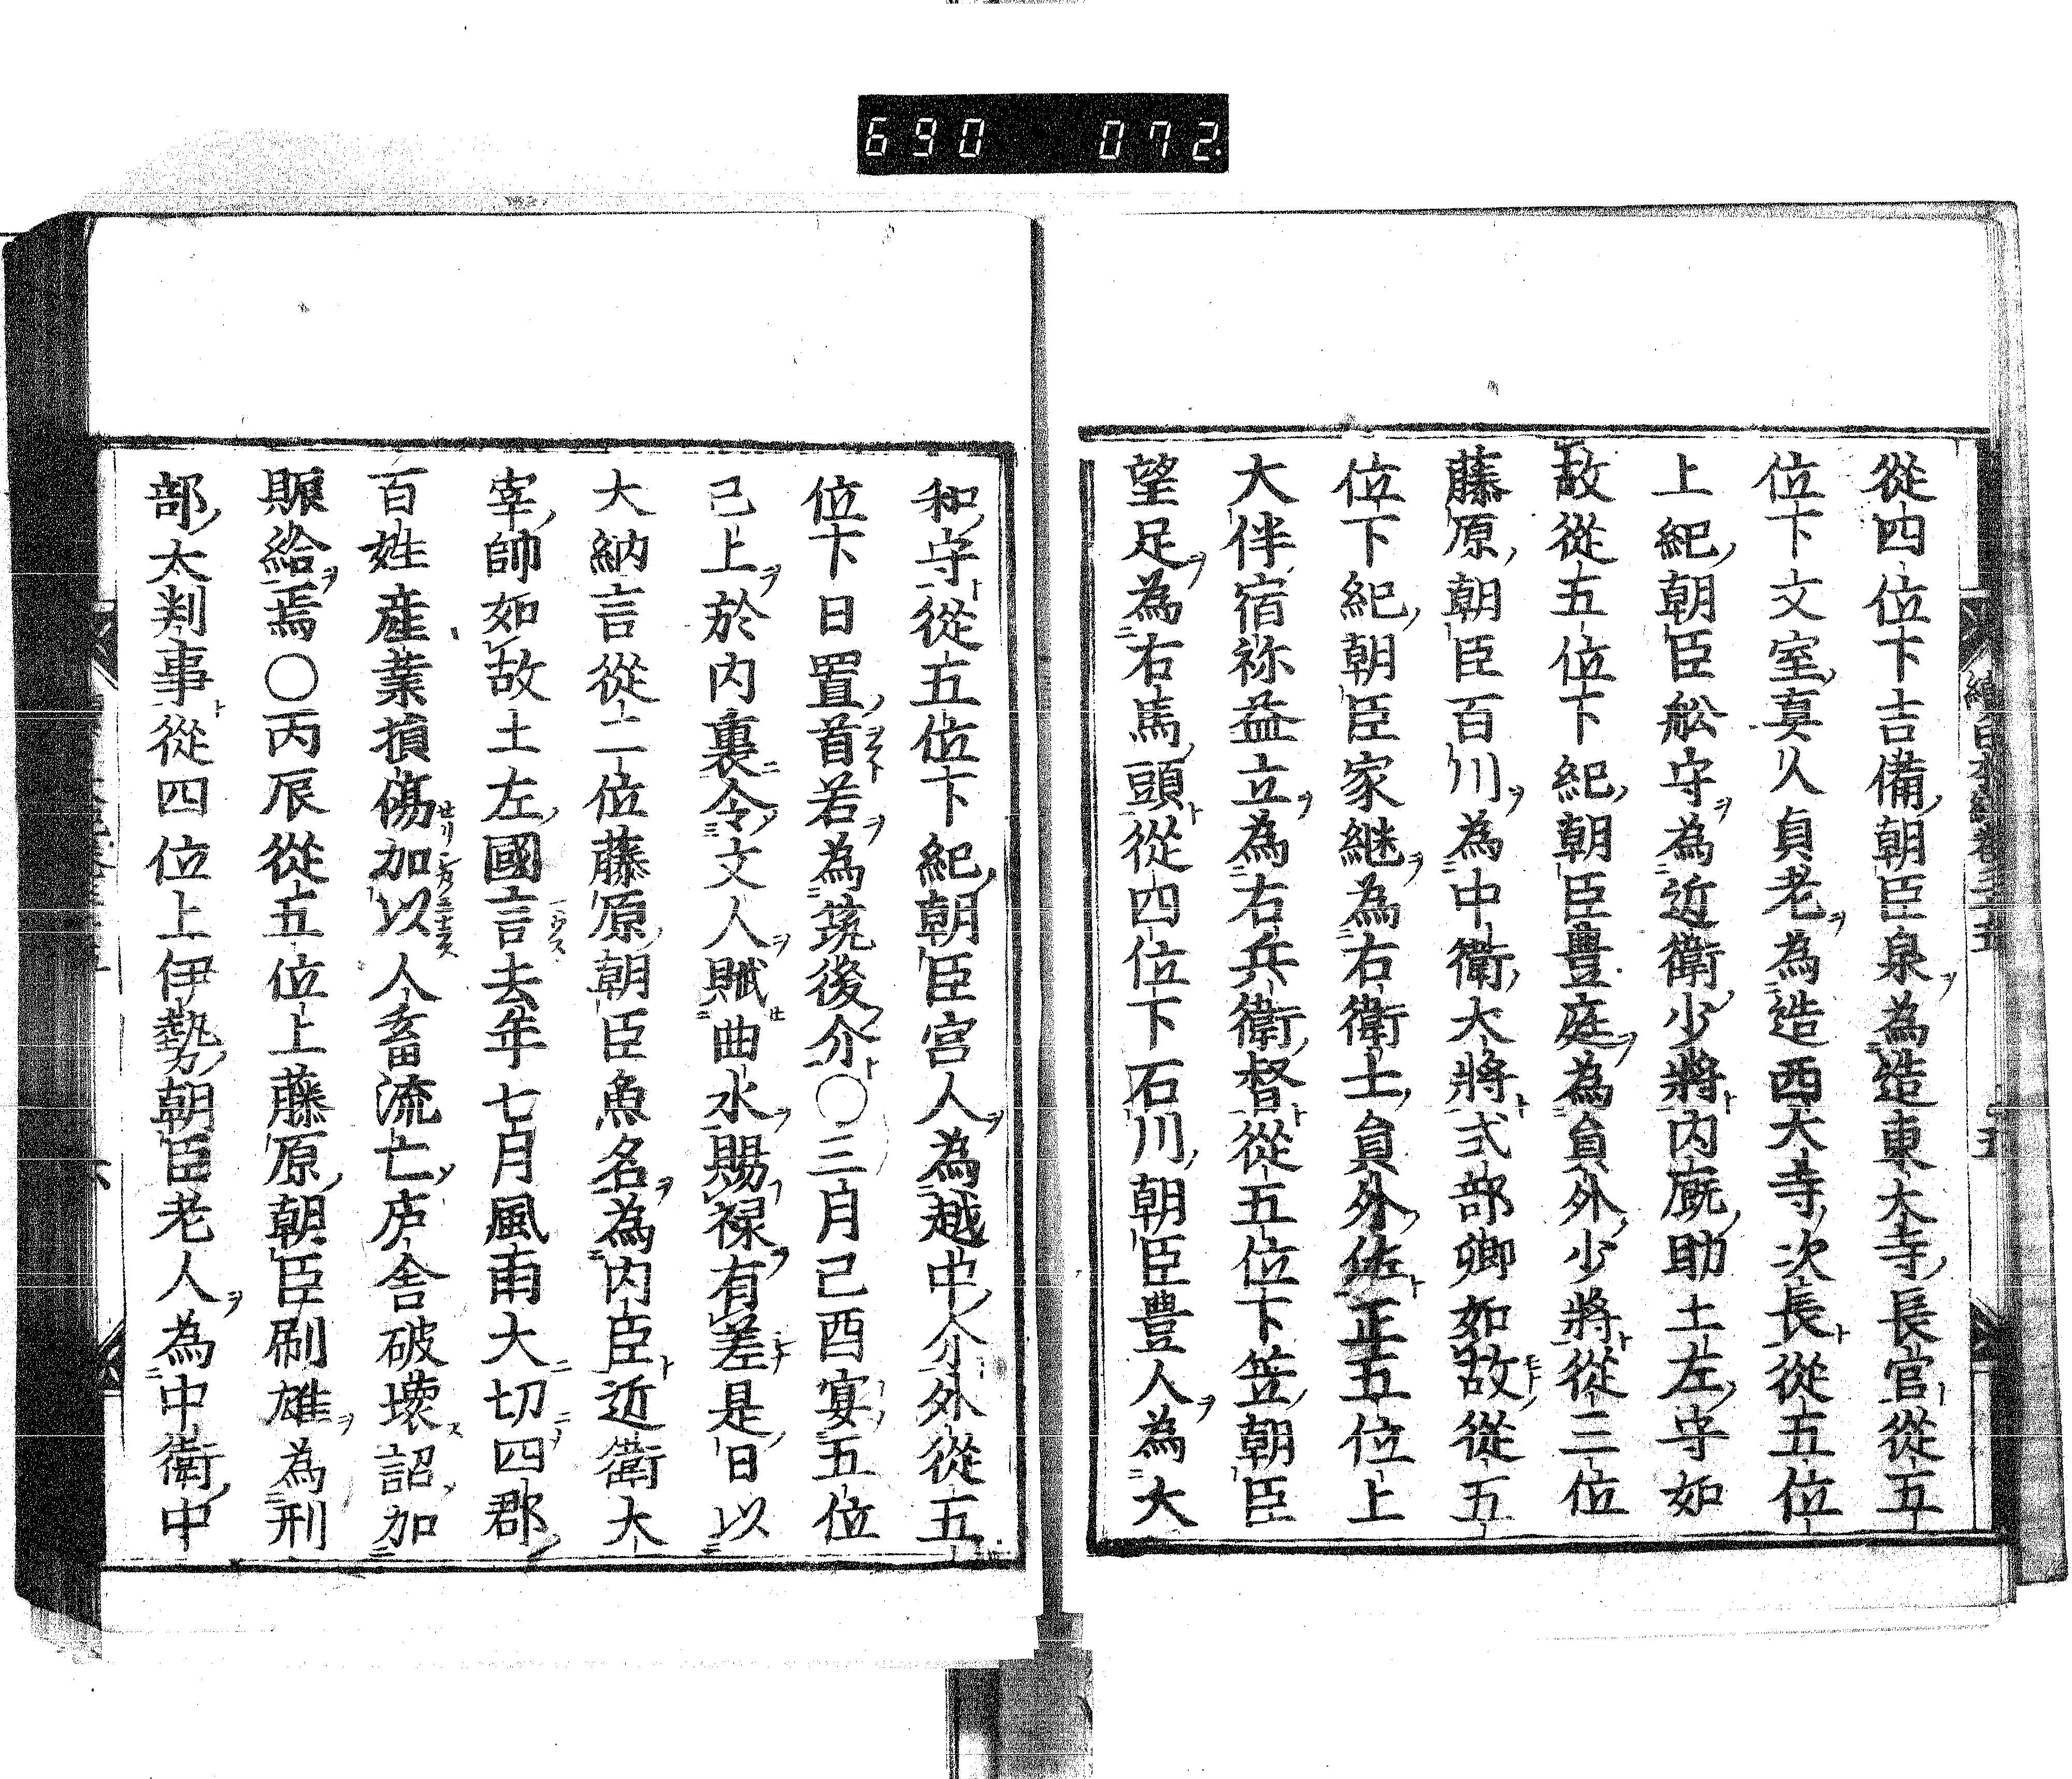 690 072
從四位下吉備朝臣泉為造東大寺長官從五
位下文室真人貞老為造西大寺次長從五位
上紀朝臣舩守為近衛少將内廐助土左守如
故從五位下紀朝臣豊庭為員外少將從三位
藤原朝臣百川為中衛大將式部卿如故從五
位下紀朝臣家継為右衛士員外佐正五位上
大伴宿祢益立為右兵衛督從五位下笠朝臣
望足為右馬頭從四位下石川朝臣豊人為大
和守從五位下紀朝臣宮人為越中介外從五
位下日置首若為筑後介〇三月己酉宴五位
已上於内裏令文人賦曲水賜禄有差是日以
大納言從二位藤原朝臣魚名為内臣近衛大
宰帥如故土左國言去年七月風雨大切四郡
百姓産業損傷加以人畜流亡庐舎破壊詔加
賑給焉〇丙辰從五位上藤原朝臣刷雄為刑
部太判事從四位上伊勢朝臣老人為中衛中